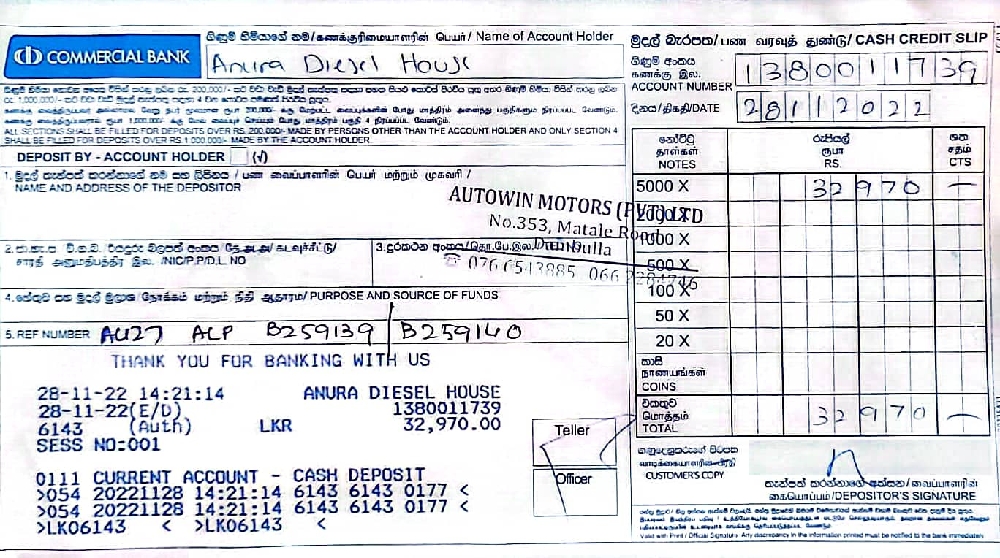 COMMERCIAL BANK
ගිණුම් හිමියාගේ නම/கணக்குரிமையாளரின் பெயர்/ Name of Account Holder
Anura Diesel House
මුදල් බැරපත/பண வரவுத் துண்டு/ CASH CREDIT SLIP
ගිණුම් අංකය
கணக்கு இல.
ACCOUNT NUMBER
1380011739
දිනය/திகதி/DATE
28112022
ALL SECTIONS SHALL BE FILLED FOR DEPOSITS OVER RS. 200,000/- MADE BY PERSONS OTHER THAN THE ACCOUNT HOLDER AND ONLY SECTION 4
SHALL BE FILLED FOR DEPOSITS OVER RS 1,000,000/- MADE BY THE ACCOUNT HOLDER
DEPOSIT BY - ACCOUNT HOLDER (√)
NAME AND ADDRESS OF THE DEPOSITOR
AUTOWIN MOTORS (PVT) LTD
No.353, Matale Road
Dambulla
NIC/P.P/D.L. NO
4. හේතුව සහ මුදල් මූලාශ්‍ර/நோக்கம் மற்றும் நிதி ஆதாரம்/ PURPOSE AND SOURCE OF FUNDS
5. REF NUMBER AU27 ALP B259139 B259140
නෝට්ටු
தாள்கள்
NOTES
රුපියල්
ரூபா
RS.
ශත
சதம்
CTS
5000 X 32970 —
2000 X
1000 X
500 X
100 X
50 X
20 X
කාසි
நாணயங்கள்
COINS
එකතුව
மொத்தம்
TOTAL 32970 —
THANK YOU FOR BANKING WITH US
28-11-22 14:21:14 ANURA DIESEL HOUSE
28-11-22(E/D) 1380011739
6143 (Auth) LKR 32,970.00
SESS NO:001
0111 CURRENT ACCOUNT - CASH DEPOSIT
>054 20221128 14:21:14 6143 6143 0177 <
>054 20221128 14:21:14 6143 6143 0177 <
>LK06143 < >LK06143 <
Teller
Officer
CUSTOMER'S COPY
தைய‍ொப்பம்/DEPOSITOR'S SIGNATURE
Valid with Print / Official Signature. Any discrepancy in the information printed must be notified to the bank immediately.